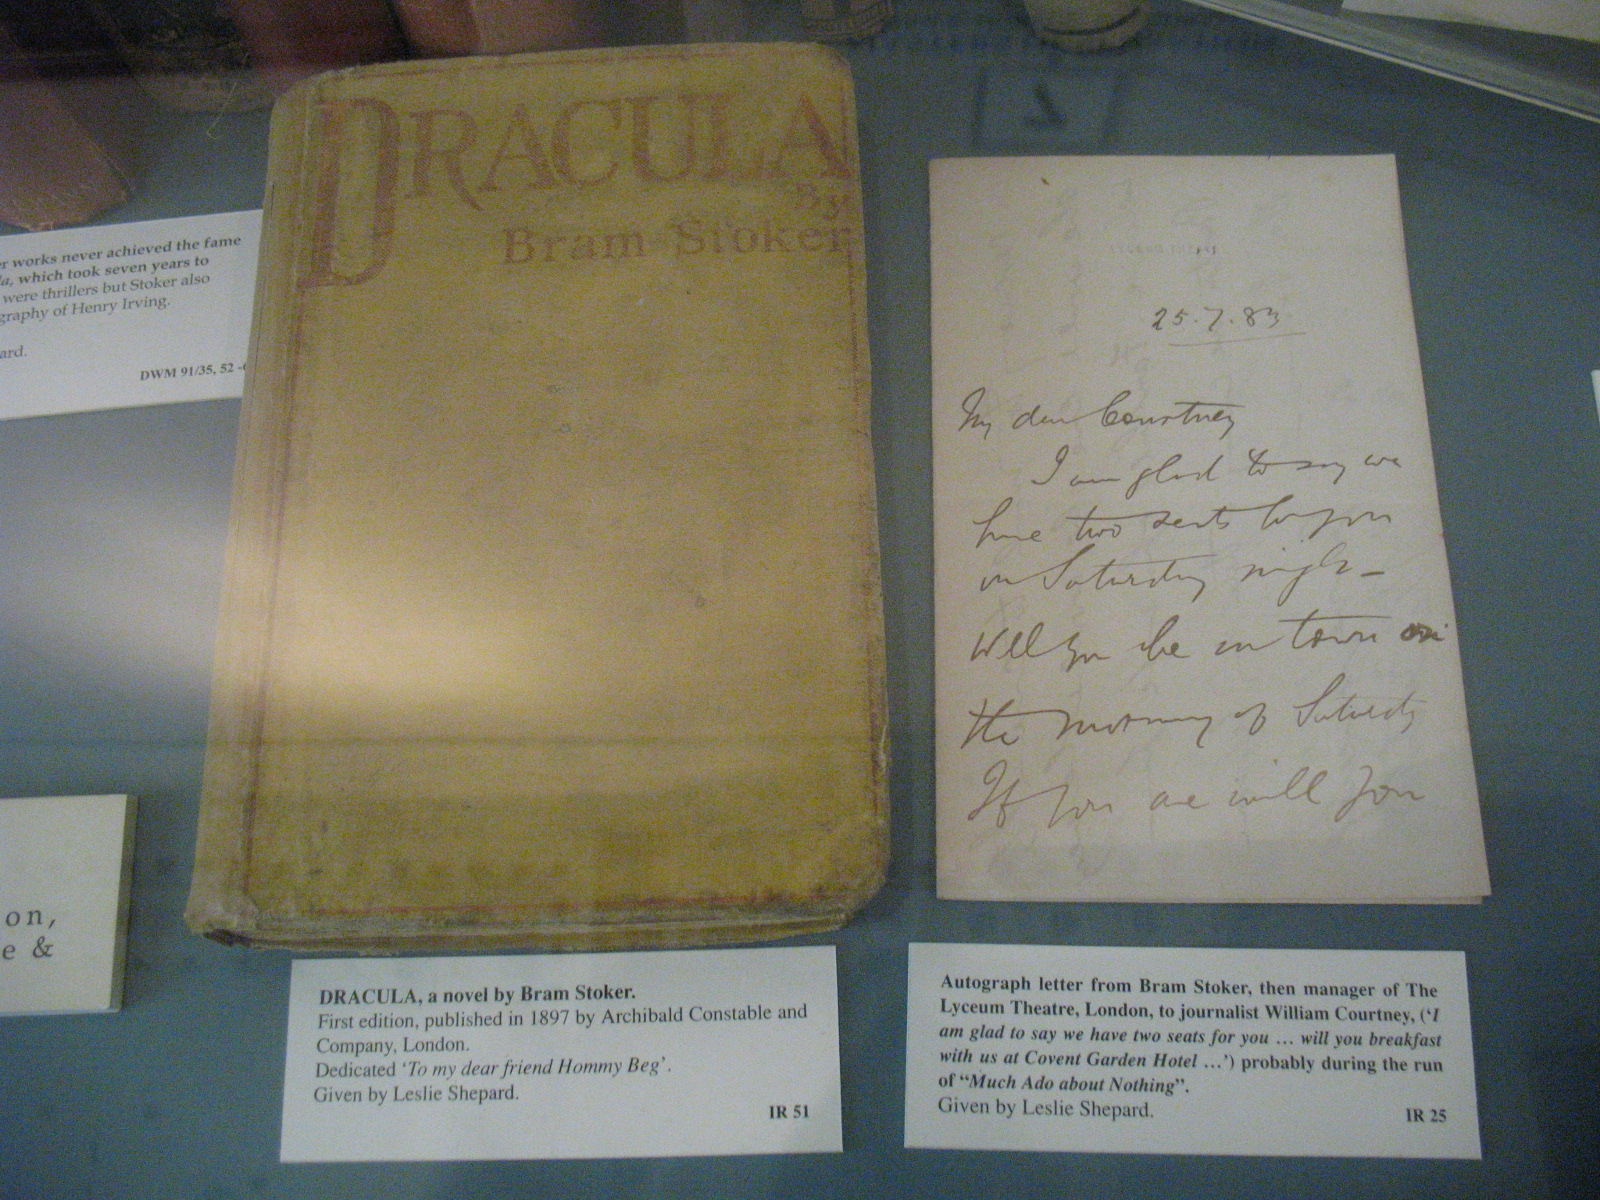 DRACULA
By
Bram Stoker
er works never achieved the fame
la, which took seven years to
were thrillers but Stoker also
graphy of Henry Irving.
ard.
DWM 91/35, 52 -
on,
e &
LYCEUM THEATRE
25.7.83
My dear Courtney
I am glad to say we
have two seats for you
on Saturday night –
Will you be in town on
the morning of Saturday
If you are will you
DRACULA, a novel by Bram Stoker.
First edition, published in 1897 by Archibald Constable and
Company, London.
Dedicated ‘To my dear friend Hommy Beg’.
Given by Leslie Shepard.
IR 51
Autograph letter from Bram Stoker, then manager of The
Lyceum Theatre, London, to journalist William Courtney, (‘I
am glad to say we have two seats for you ... will you breakfast
with us at Covent Garden Hotel ...’) probably during the run
of “Much Ado about Nothing”.
Given by Leslie Shepard.
IR 25